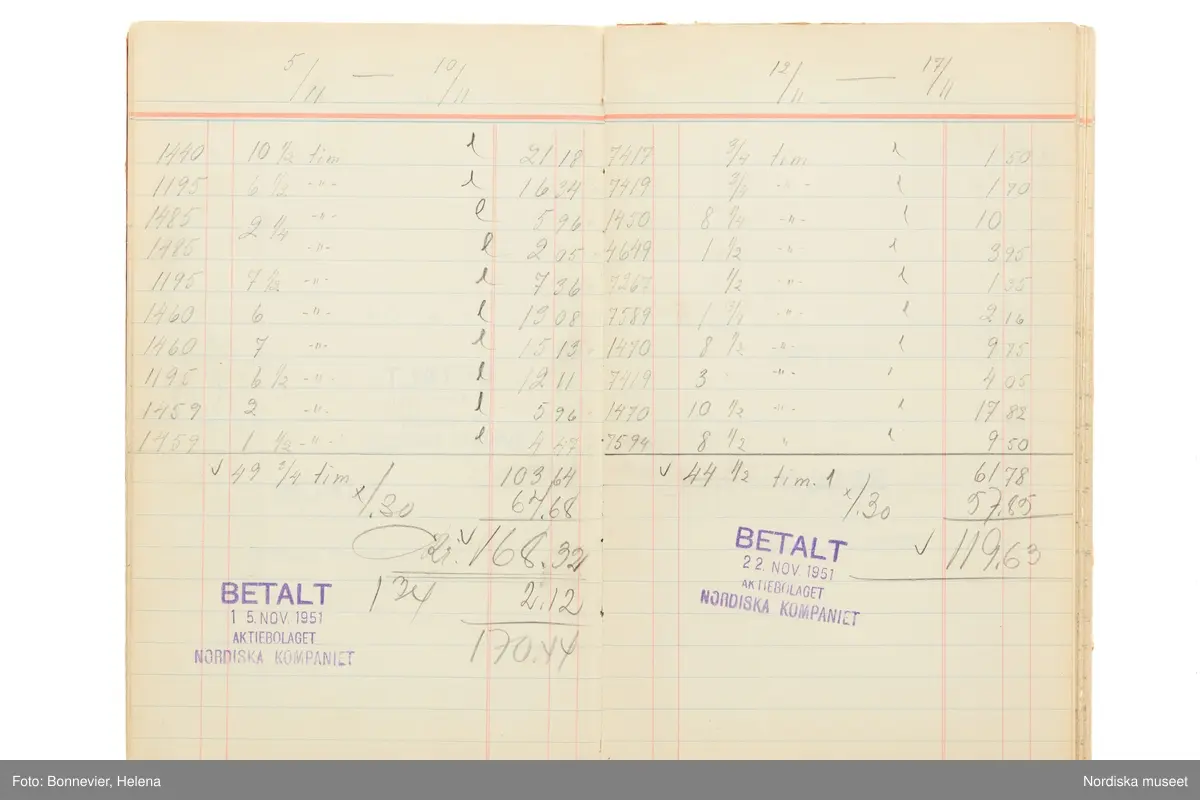 5/11 — 10/11
1440 10 1/2 tim l 21 18
1195 6 1/2 -"- l 16 34
1485 2 1/4 -"- l 5 96
1485 -"- l 2 05
1195 7 1/2 -"- l 7 36
1460 6 -"- l 13 08
1460 7 -"- l 15 13
1195 6 1/2 -"- l 12 11
1459 2 -"- l 5 96
1459 1 1/2 -"- l 4 47
√ 49 3/4 tim 103 64
x/1.30 67.68
Kr. √ 168.32
1 3/4 2.12
170.44
BETALT
1 5. NOV. 1951
AKTIEBOLAGET
NORDISKA KOMPANIET
12/11 — 17/11
7417 3/4 tim l 1 50
7419 3/4 -"- l 1 70
1450 8 3/4 -"- l 10
4649 1 1/2 -"- l 3 95
7267 1/2 -"- l 1 35
7589 1 3/4 -"- l 2 16
1470 8 1/2 -"- l 9 75
7419 3 -"- l 4 05
1470 10 1/2 -"- l 17 82
7594 8 1/2 " l 9 50
√ 44 1/2 tim. 1 61 78
x/1.30 57.85
√ 119.63
BETALT
2 2. NOV. 1951
AKTIEBOLAGET
NORDISKA KOMPANIET
Foto: Bonnevier, Helena
Nordiska museet